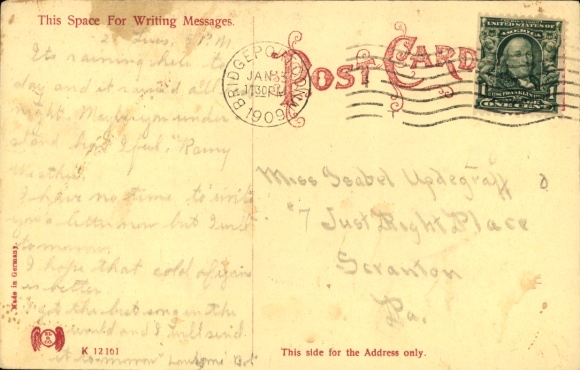 This Space For Writing Messages.
Its raining here to
day and it rained all
night. Maybe you under
stand how I feel, "Rainy
Weather
I have no time to write
you a letter now but I will
tomorrow
I hope that cold of yours
is better.
I got the best song in the
world and I will send
it tomorrow "Lonesome
Made in Germany.
K 12161
POST CARD
BRIDGEPORT, CONN.
JAN
1909
UNITED STATES OF
AMERICA
1 FRANKLIN 1
ONE CENT
Miss Isabel Updegraff
7 Just Right Place
Scranton
Pa.
This side for the Address only.